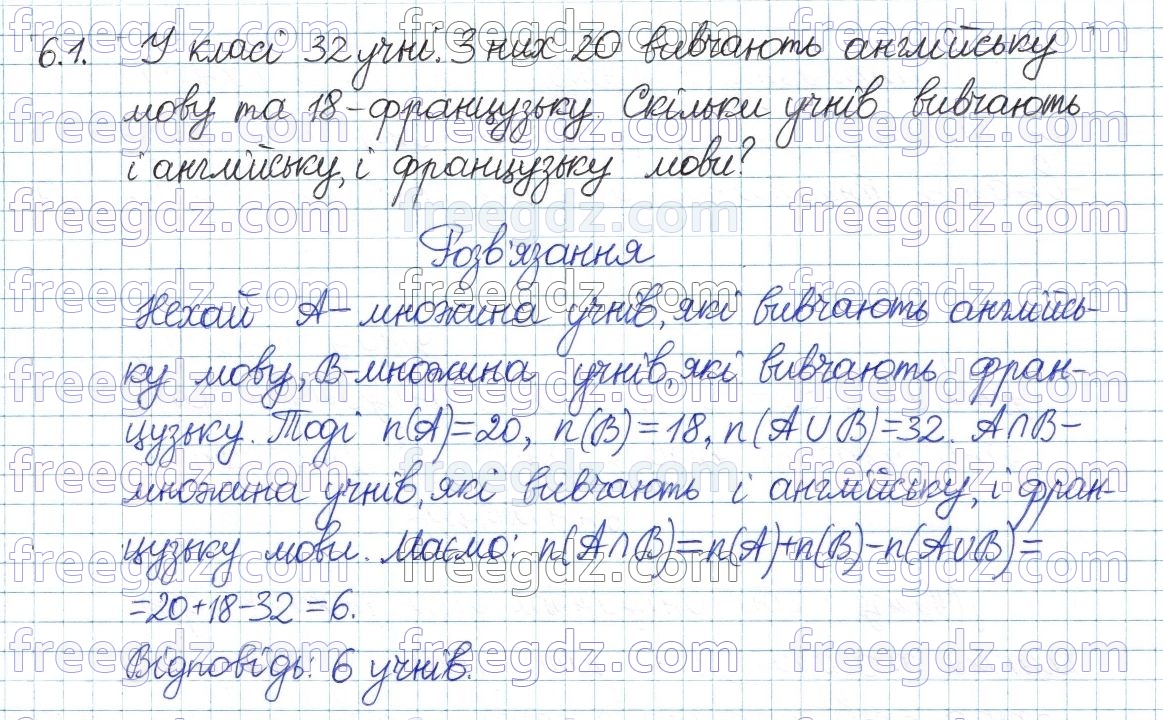 6.1. У класі 32 учні. З них 20 вивчають англійську
мову та 18-французьку. Скільки учнів вивчають
і англійську, і французьку мови?
Розв'язання
Нехай A - множина учнів, які вивчають англійсь-
ку мову, B - множина учнів, які вивчають фран-
цузьку. Тоді n(A)=20, n(B)=18, n(A∪B)=32. A∩B -
множина учнів, які вивчають і англійську, і фран-
цузьку мови. Маємо: n(A∩B)=n(A)+n(B)-n(A∪B)=
=20+18-32=6.
Відповідь: 6 учнів.
freegdz.com